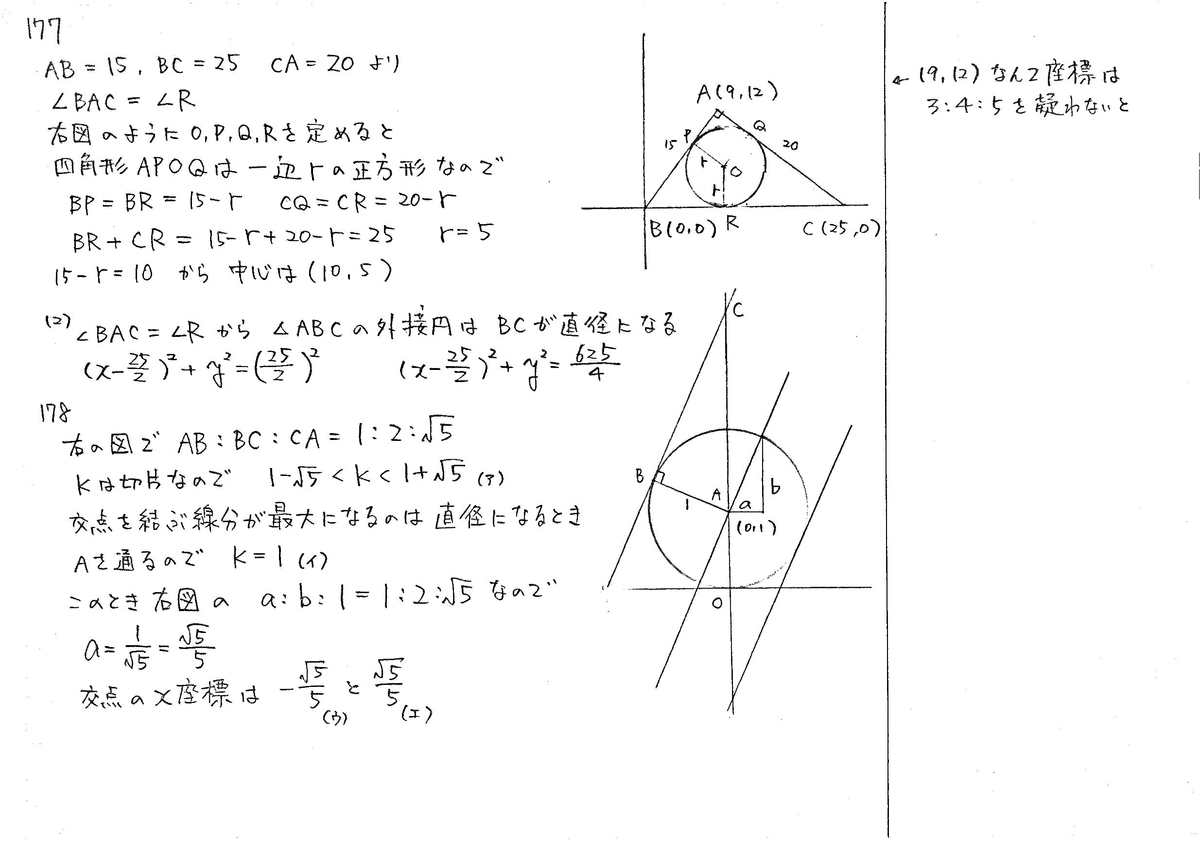 177
AB = 15, BC = 25 CA = 20 より
∠BAC = ∠R
右図のように O,P,Q,Rを定めると
四角形 APOQは一辺rの正方形なので
BP = BR = 15-r CQ = CR = 20-r
BR + CR = 15-r+20-r = 25 r = 5
15-r = 10 から 中心は (10, 5)
(2) ∠BAC = ∠R から △ABC の外接円は BCが直径になる
(x-25/2)²+y²=(25/2)² (x-25/2)²+y²=625/4
178
右の図で AB:BC:CA = 1:2:√5
Kは切片なので 1-√5 < k < 1+√5 (ア)
交点を結ぶ線分が最大になるのは直径になるとき
Aを通るので k = 1 (イ)
このとき右図の a:b:1 = 1:2:√5 なので
a = 1/√5 = √5/5
交点のx座標は -√5/5 (ウ) と √5/5 (エ)
A(9,12)
P
Q
15
20
r
O
r
B(0,0) R C(25,0)
C
B
A
1
a
b
(0,1)
O
← (9,12) なんて座標は
3:4:5を疑わないと